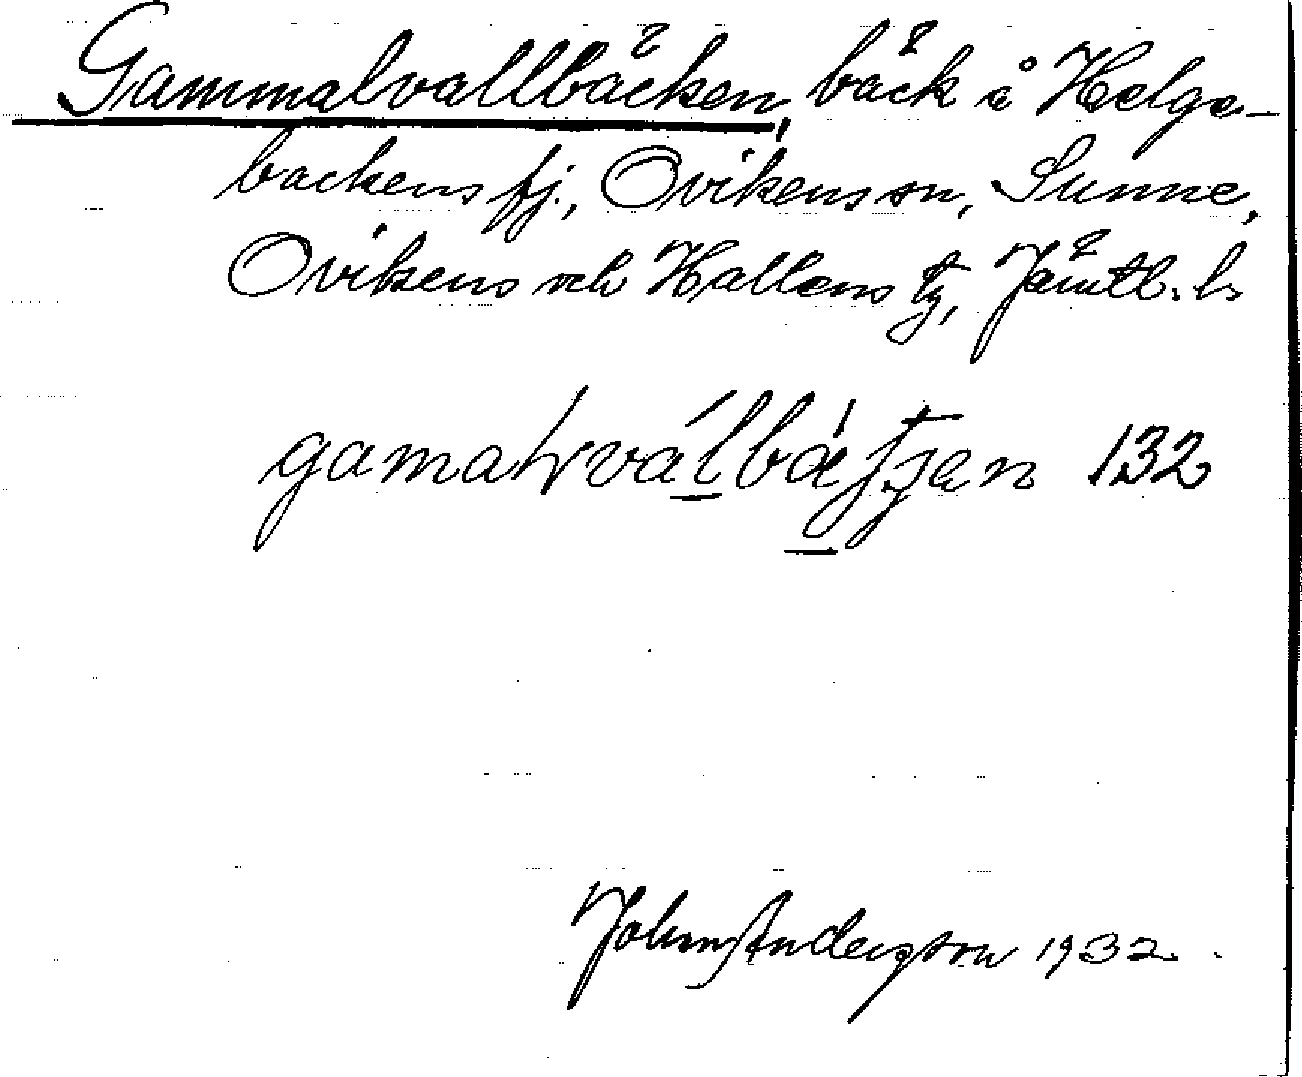 Gammalvallbäcken, bäck i Helge-
backens fj., Ovikens sn, Sunne,
Ovikens och Hallens tg, Jämtl. l.
132
John Andersson 1932.